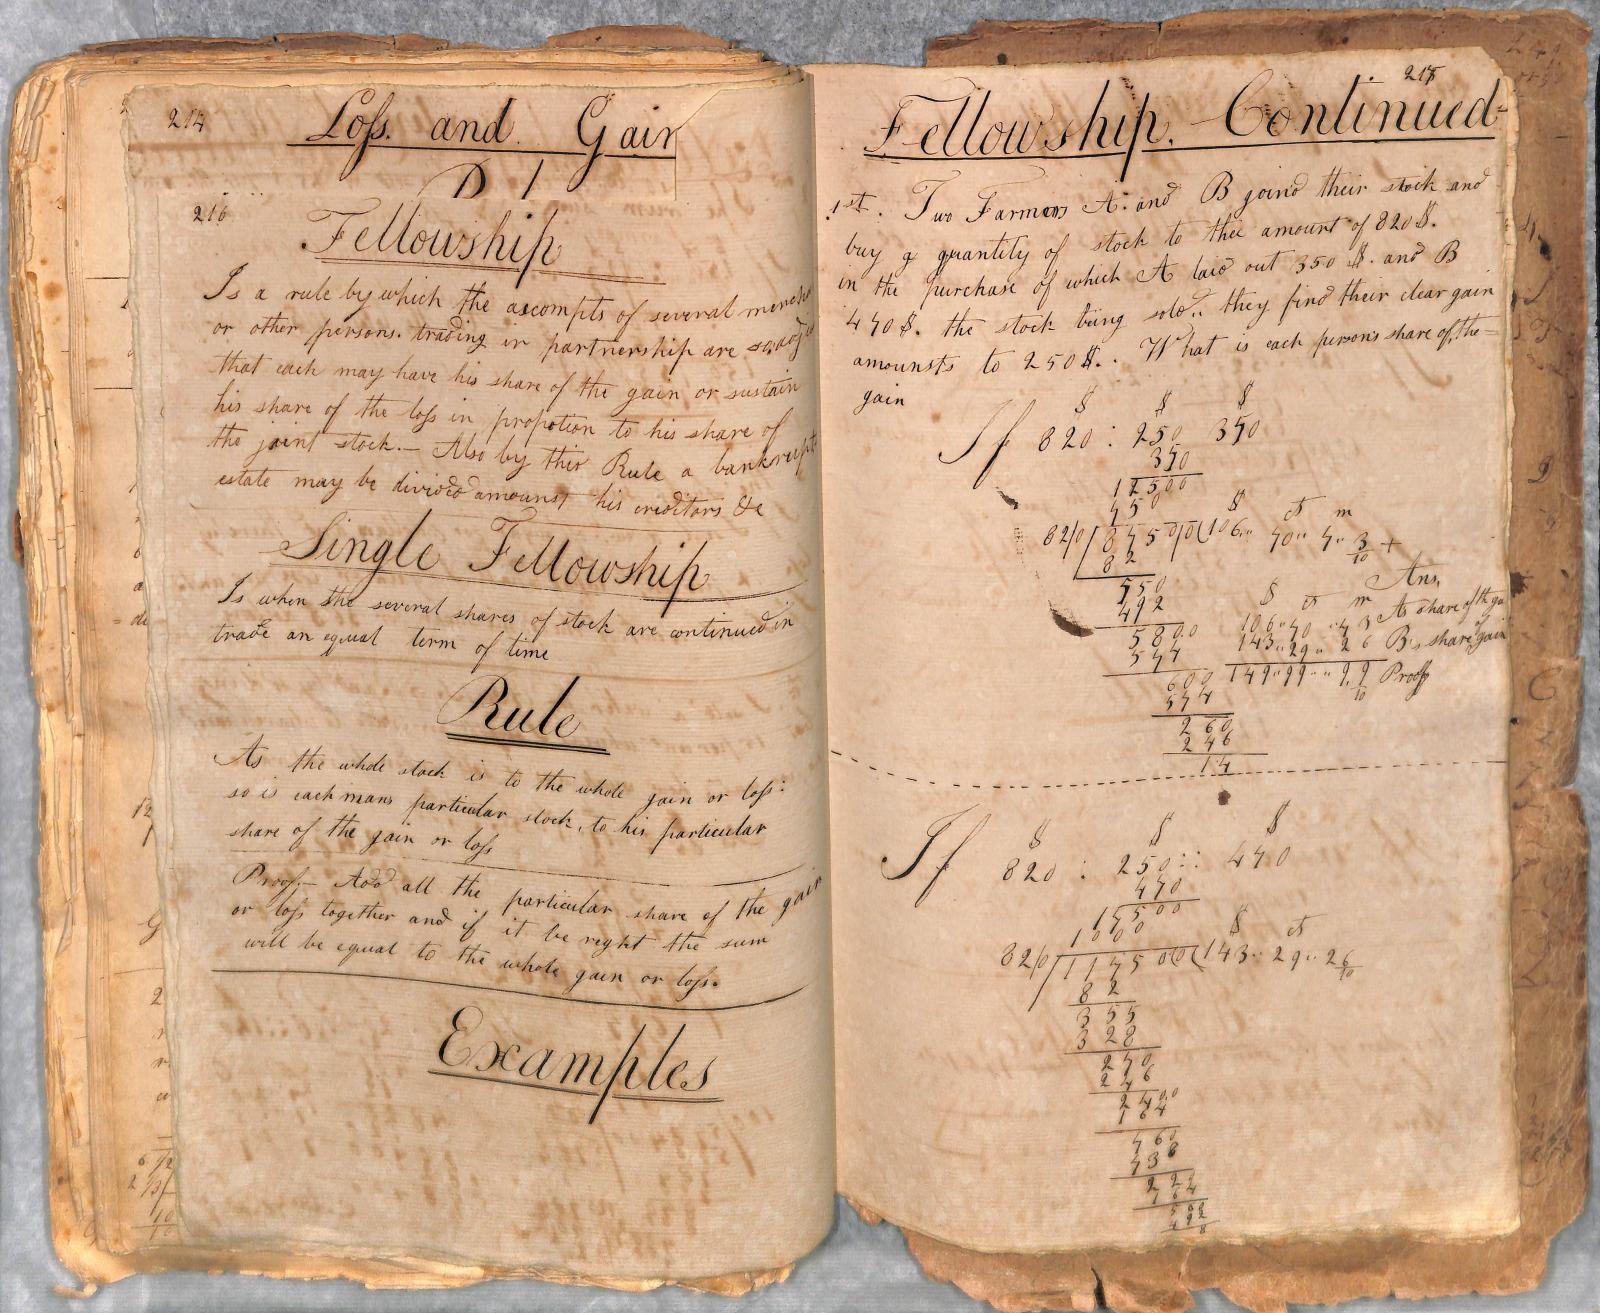 214
Loſs. and Gain
216
Fellowship
Is a rule by which the accompts of several
or other persons. trading in partnership are
that each may have his share of the gain or sustain
his share of the loſs in propotion to his share of
the joint stock.— Also by this Rule a bankrupt
estate may be divided amounst his creditors &c
Single Fellowship
Is when the several shares of stock are continued in
trade an equal term of time
Rule
As the whole stock is to the whole gain or loſs:
so is each mans particular stock, to his particular
share of the gain or loſs
Proof.— Add all the particular share of the gain
or loſs together and if it be reght the sum
will be equal to the whole gain or loſs.
Examples
217
Fellowship. Continued
1st. Two Farmers A. and B joind their stock and
buy a quantity of stock to thee amount of 820 $.
in the purchase of which A laid out 350 $. and B
470 $. the stock being sold.. they find their clear gain
amounsts to 250 $. What is each persons share of the
gain
$ $ $
If 820 : 250 350
350
12500
750
$ ct m
82|0 / 8750|0 ( 106.. 70.. 7.. 3/10 +
82
550
492
Ans,
$ ct m
5800
574
106.. 70 .. 73 As share of the
143.. 29.. 26 B,s share gain
600
149..99.. .. 99/10 Proof
574
260
246
14
$ $ $
If 820 : 250 :: 470
470
17500
1000
$ ct
82|0 / 1175 0|0 ( 143.. 29.. 2 6/10
82
355
328
270
246
2400
164
760
738
22
164
492
8